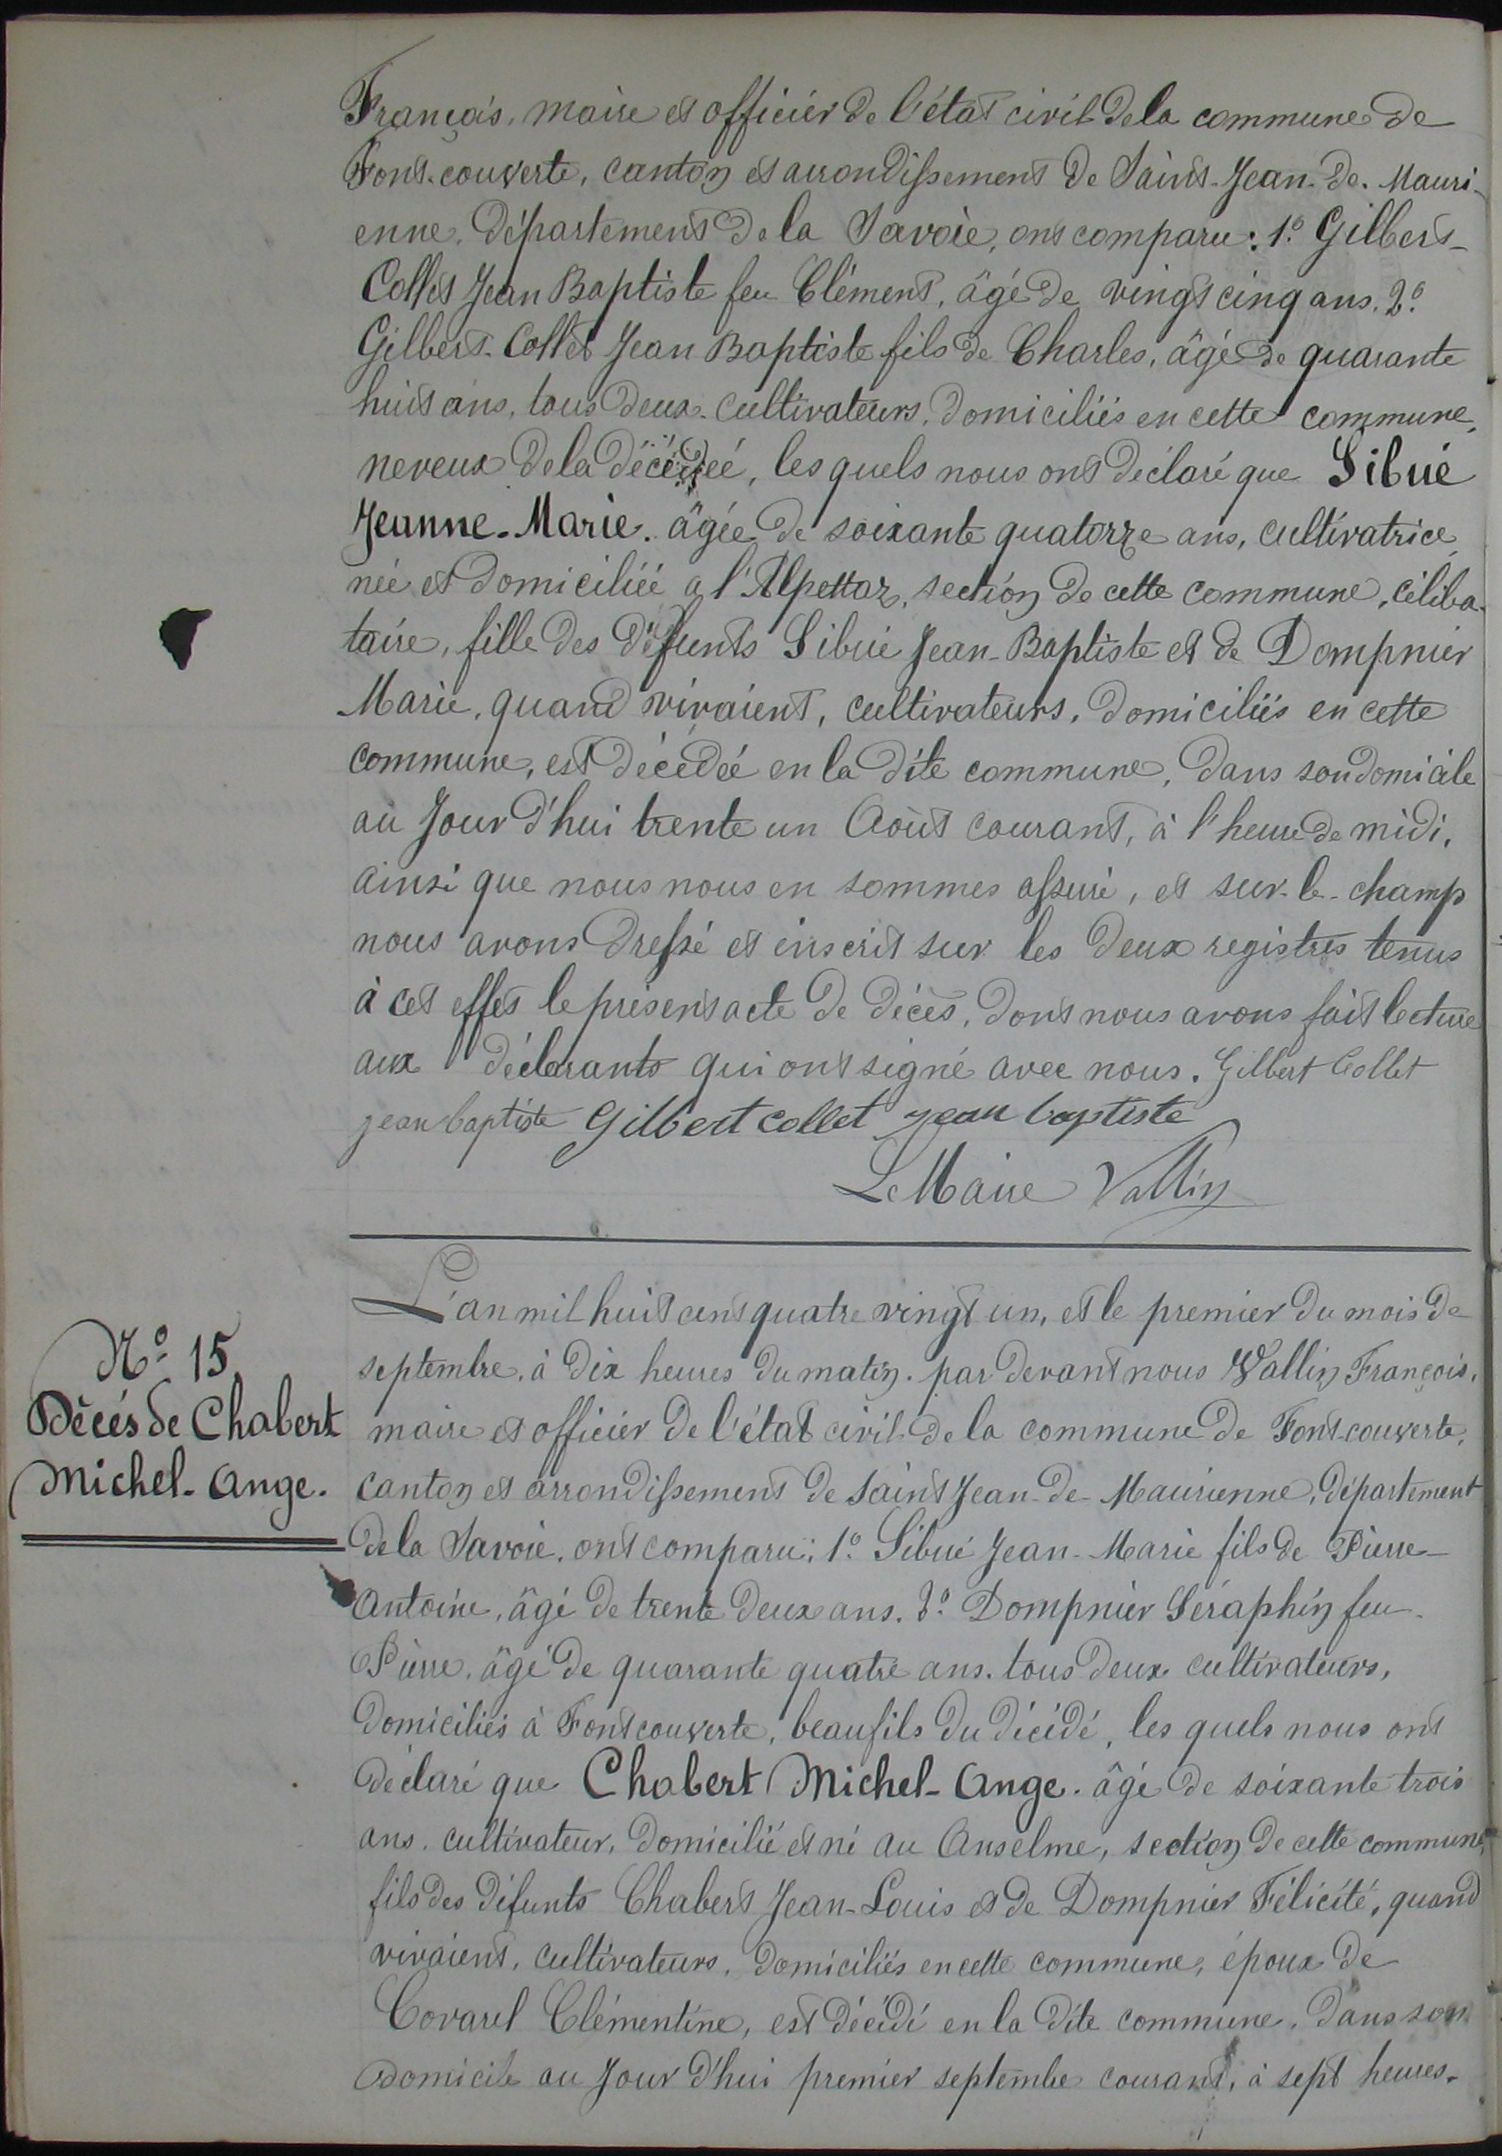 François, maire et officier de l'état civil de la commune de
Font-couverte, canton et arrondissement de Saint-Jean-de-Mauri-
enne, département de la Savoie, ont comparu : 1º Gilbert-
Collet Jean Baptiste feu Clément, âgé de vingt cinq ans. 2º
Gilbert-Collet Jean Baptiste fils de Charles, âgé de quarante
huit ans, tous deux cultivateurs, domiciliés en cette commune,
neveux de la décédée, les quels nous ont déclaré que Sibué
Jeanne-Marie. âgée de soixante quatorze ans, cultivatrice
née et domiciliée a l'Alpettaz, section de cette commune, céliba-
taire, fille des défunts Sibué Jean-Baptiste et de Dompnier
Marie, quand vivaient, cultivateurs, domiciliés en cette
commune, est décédée en la dite commune, dans son domicile
au jour d'hui trente un Août courant, à l'heure de midi,
ainsi que nous nous en sommes assuré, et sur-le-champ
nous avons dressé et inscrit sur les deux registres tenus
à cet effet le présent acte de décès, dont nous avons fait lecture
aux déclarants qui ont signé avec nous. Gilbert Collet
jean baptiste Gilbert collet jean baptiste
Le Maire Vallin
L'an mil huit cent quatre vingt un, et le premier du mois de
septembre, à dix heures du matin. par devant nous Vallin François,
Nº 15
Décès de Chabert
Michel-Ange.
maire et officier de l'état civil de la commune de Font-couverte,
canton et arrondissement de Saint Jean-de-Maurienne, département
de la Savoie, ont comparu : 1º Sibué Jean-Marie fils de Pierre-
Antoine, âgé de trente deux ans. 2º Dompnier Séraphin feu
Pierre, âgé de quarante quatre ans. tous deux cultivateurs,
domiciliés à Fontcouverte, beaufils du décédé, les quels nous ont
déclaré que Chabert Michel-Ange. âgé de soixante trois
ans. cultivateur, domicilié et né au Anselme, section de cette commune,
fils des défunts Chabert Jean-Louis et de Dompnier Félicité, quand
vivaient, cultivateurs, domiciliés en cette commune, époux de
Covarel Clémentine, est décédé en la dite commune, dans son
domicile au jour d'hui premier septembre courant, à sept heures.